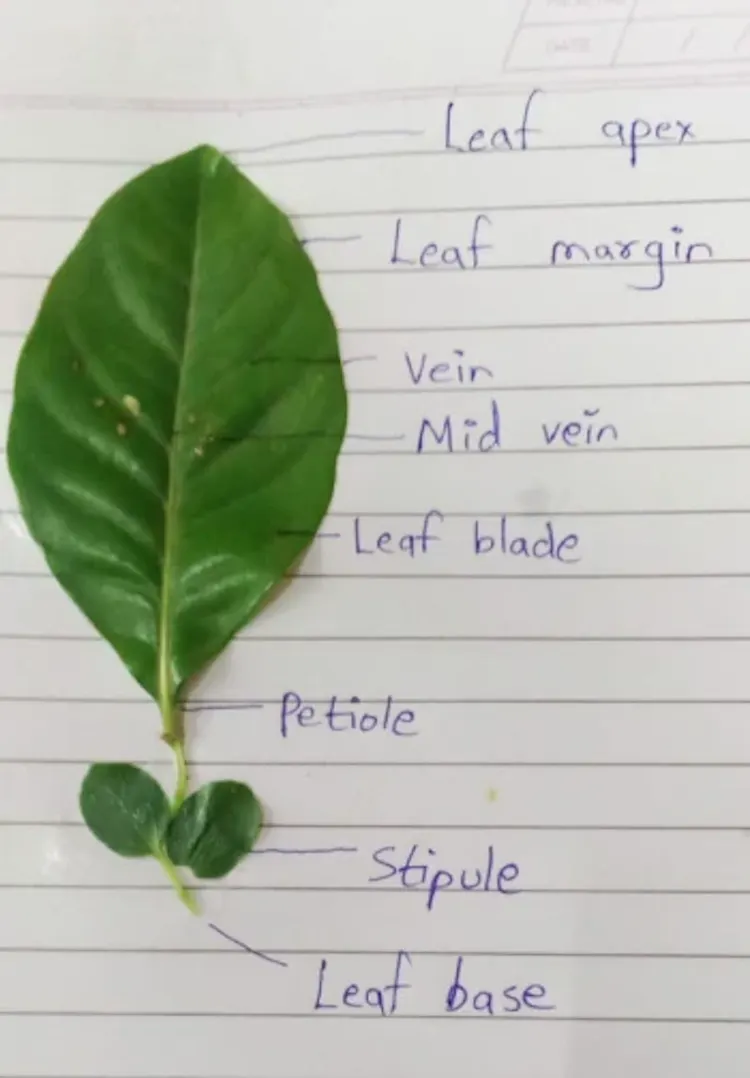 DATE
Leaf apex
Leaf margin
Vein
Mid vein
Leaf blade
Petiole
Stipule
Leaf base